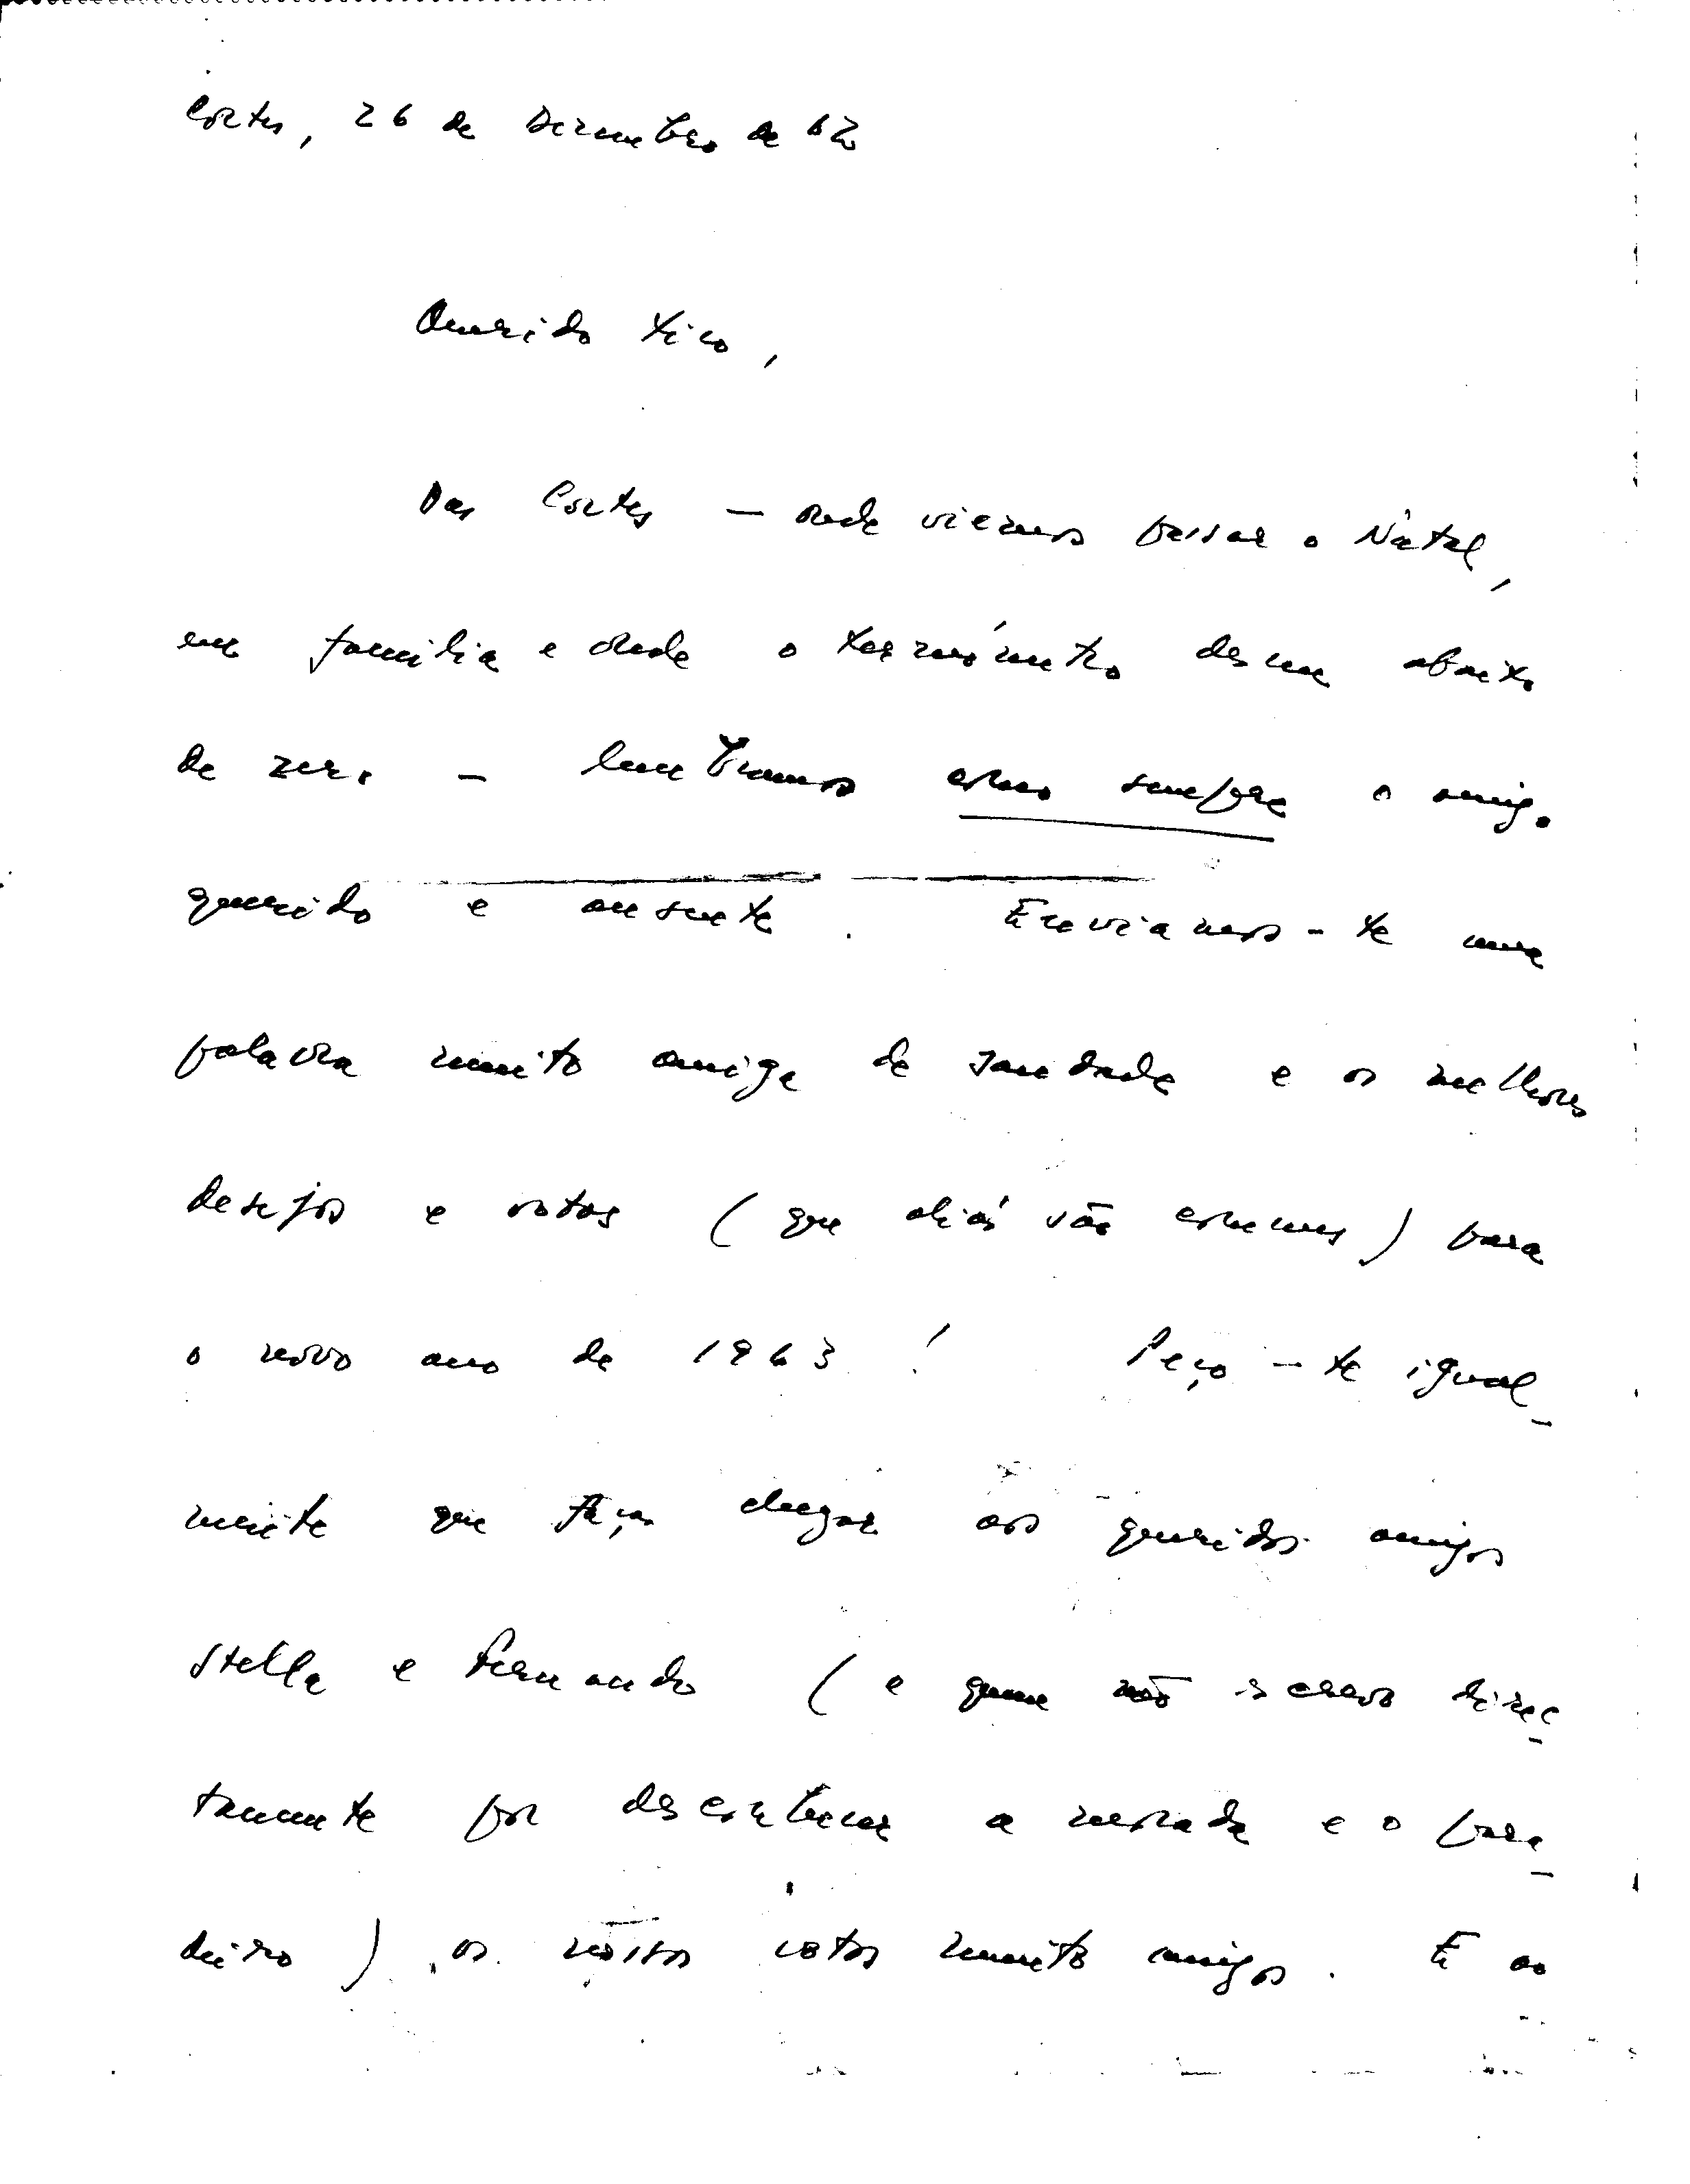 Cortes, 26 de Dezembro de 62
Querido Xico,
Das Cortes – onde viemos passar o Natal,
em familia e onde o termómetro desce abaixo
de zero – lembramos como sempre o amigo
querido e ausente. Enviamos-te uma
palavra muito amiga de saudade e os melhores
desejos e votos (que aliás são comuns) para
o novo ano de 1963! Peço-te igual-
mente que faças chegar aos queridos amigos
Stella e Fernando (a quem não escrevo direc-
tamente por desconhecer a morada e o para-
deiro) os nossos votos muito amigos. E ao